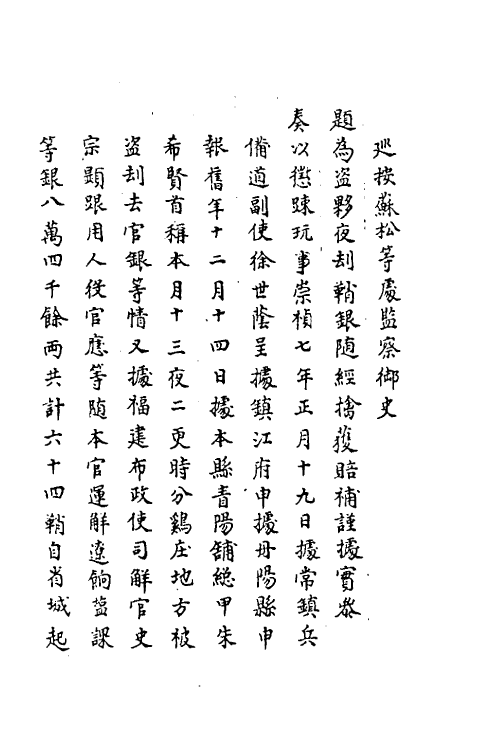 巡按蘇松等處監察御史
題為盜夥夜刦鞘銀随經擒獲賠補謹據實叅
奏以懲踈玩事崇禎七年正月十九日據常鎮兵
備道副使徐世蔭呈據鎮江府申據丹陽縣申
報舊年十二月十四日據本縣青陽舖總甲朱
希賢首稱本月十三夜二更時分鷄庄地方被
盜刦去官銀等情又據福建布政使司解官史
宗顕跟用人役官應等随本官運解遼餉蓝課
等銀八萬四千餘兩共計六十四鞘自省城起